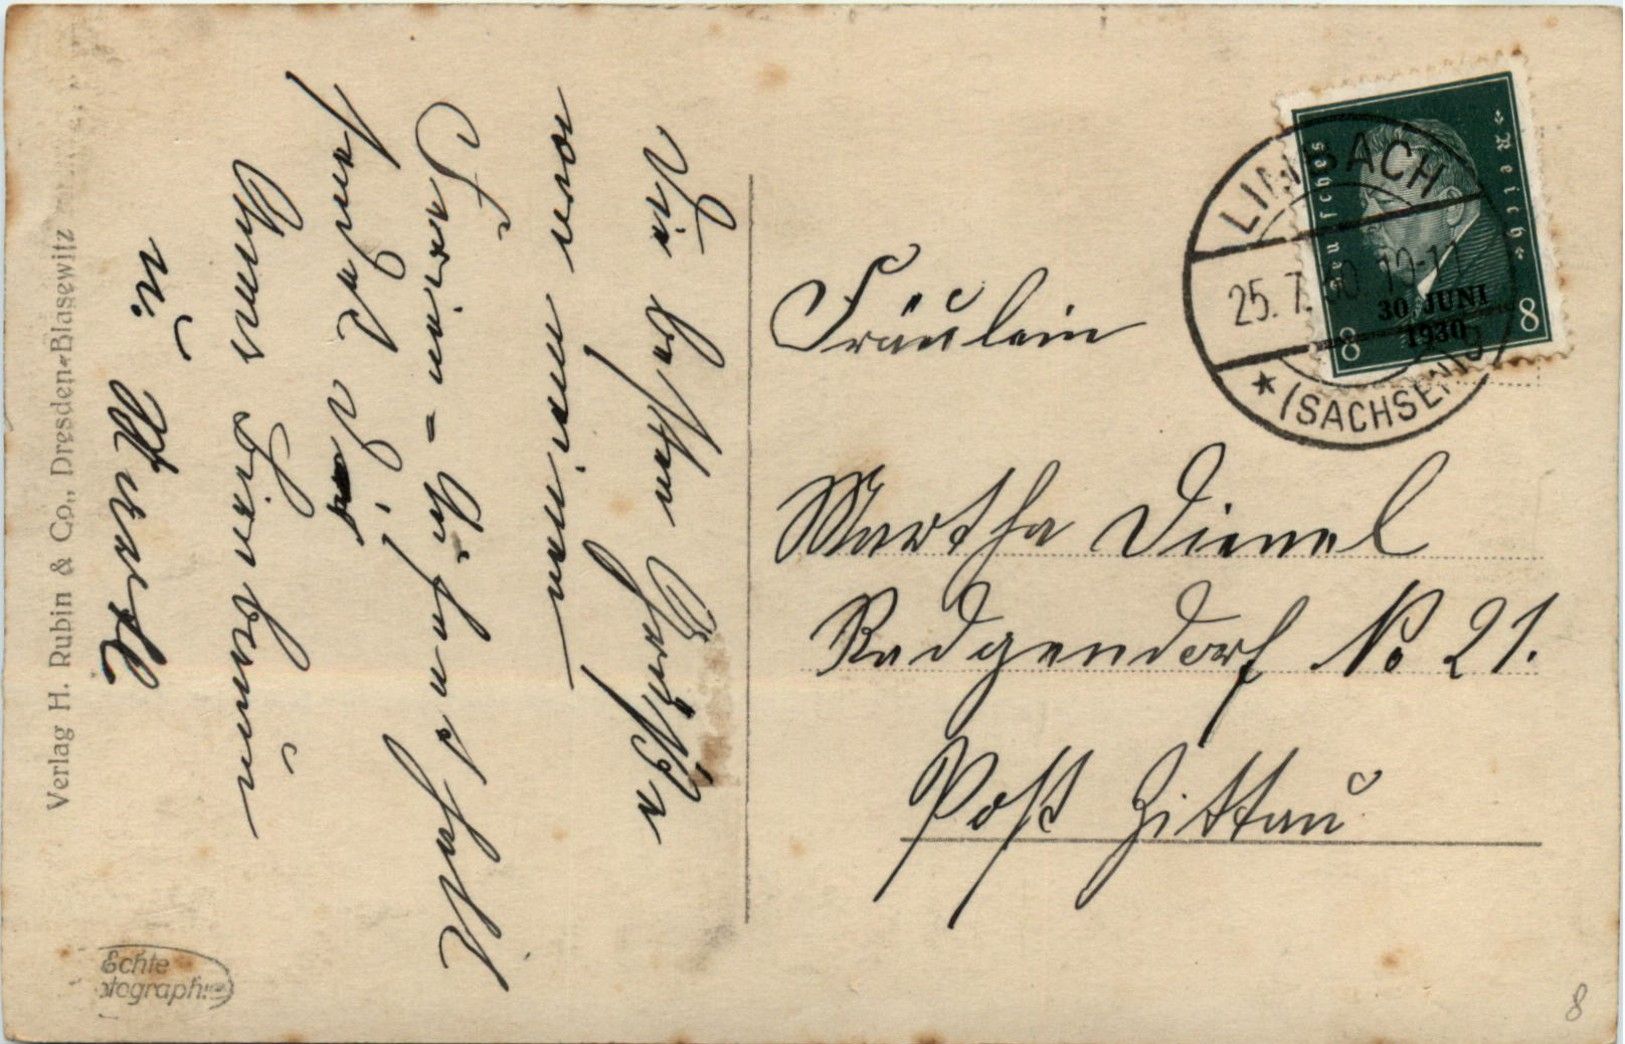 LIMBACH
25. 7. 30. 10-11
(SACHSEN)
Deutsches Reich
30. JUNI
1930
8 8
Fräulein
Martha Dienel
Radgendorf No 21.
Post Zittau
Die besten Grüße
von meiner
Ferien-
sendet Dir
u.
Verlag H. Rubin & Co., Dresden-Blasewitz
Echte
8